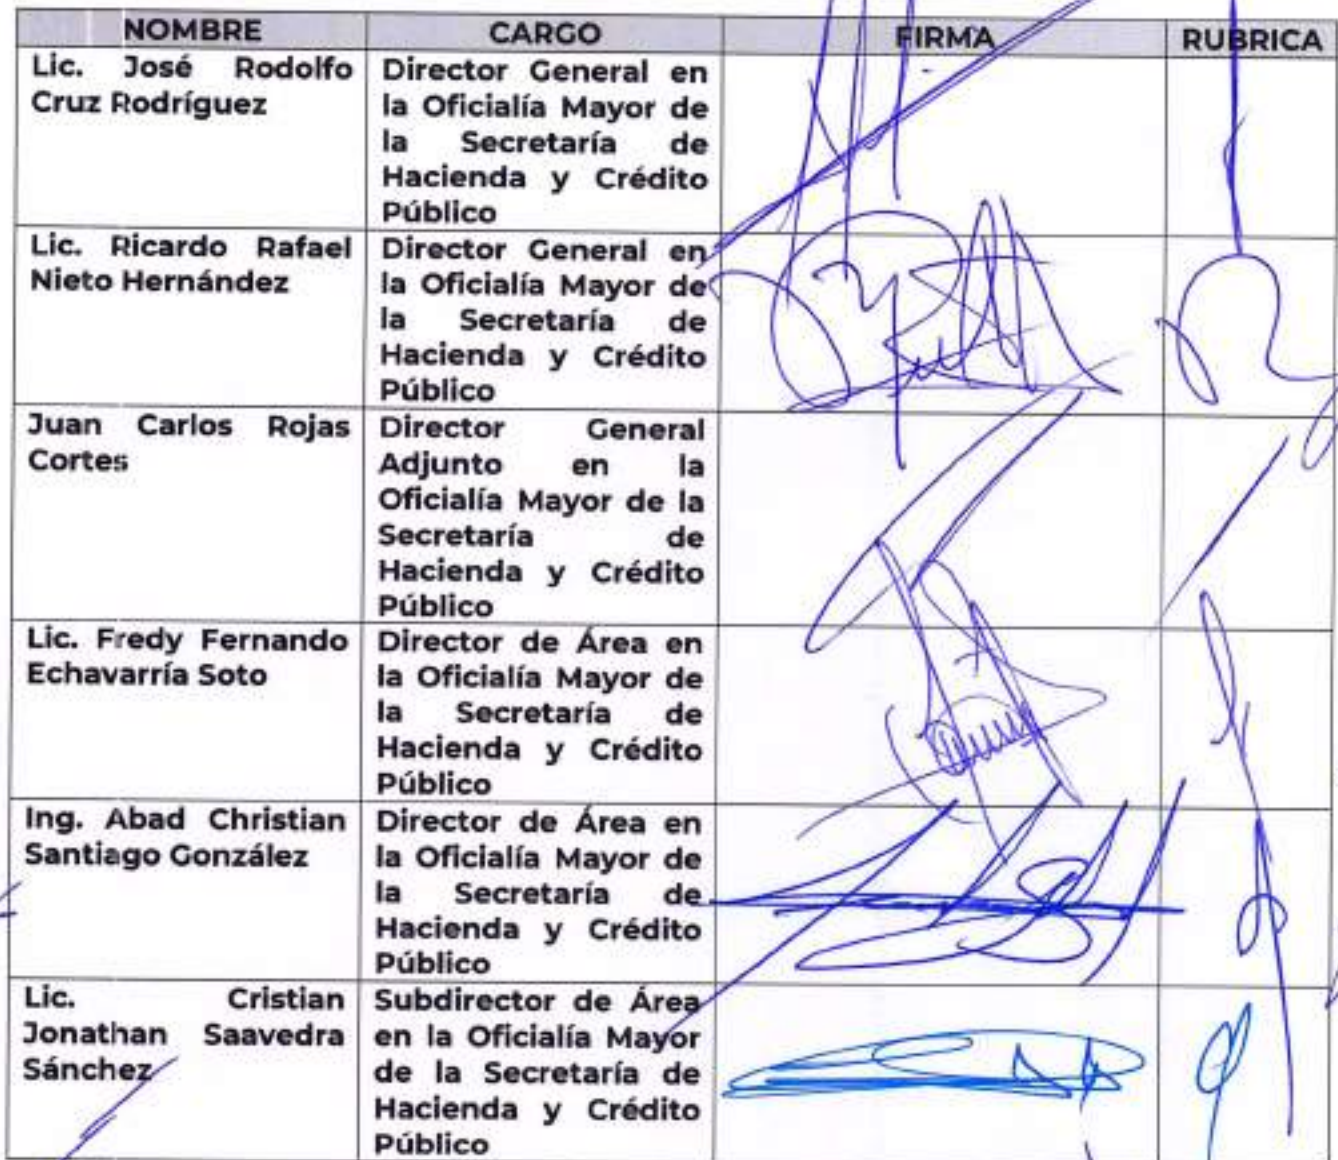 NOMBRE CARGO FIRMA RUBRICA
Lic. José Rodolfo
Cruz Rodríguez
Director General en
la Oficialía Mayor de
la Secretaría de
Hacienda y Crédito
Público
Lic. Ricardo Rafael
Nieto Hernández
Director General en
la Oficialía Mayor de
la Secretaría de
Hacienda y Crédito
Público
Juan Carlos Rojas
Cortes
Director General
Adjunto en la
Oficialía Mayor de la
Secretaría de
Hacienda y Crédito
Público
Lic. Fredy Fernando
Echavarría Soto
Director de Área en
la Oficialía Mayor de
la Secretaría de
Hacienda y Crédito
Público
Ing. Abad Christian
Santiago González
Director de Área en
la Oficialía Mayor de
la Secretaría de
Hacienda y Crédito
Público
Lic. Cristian
Jonathan Saavedra
Sánchez
Subdirector de Área
en la Oficialía Mayor
de la Secretaría de
Hacienda y Crédito
Público